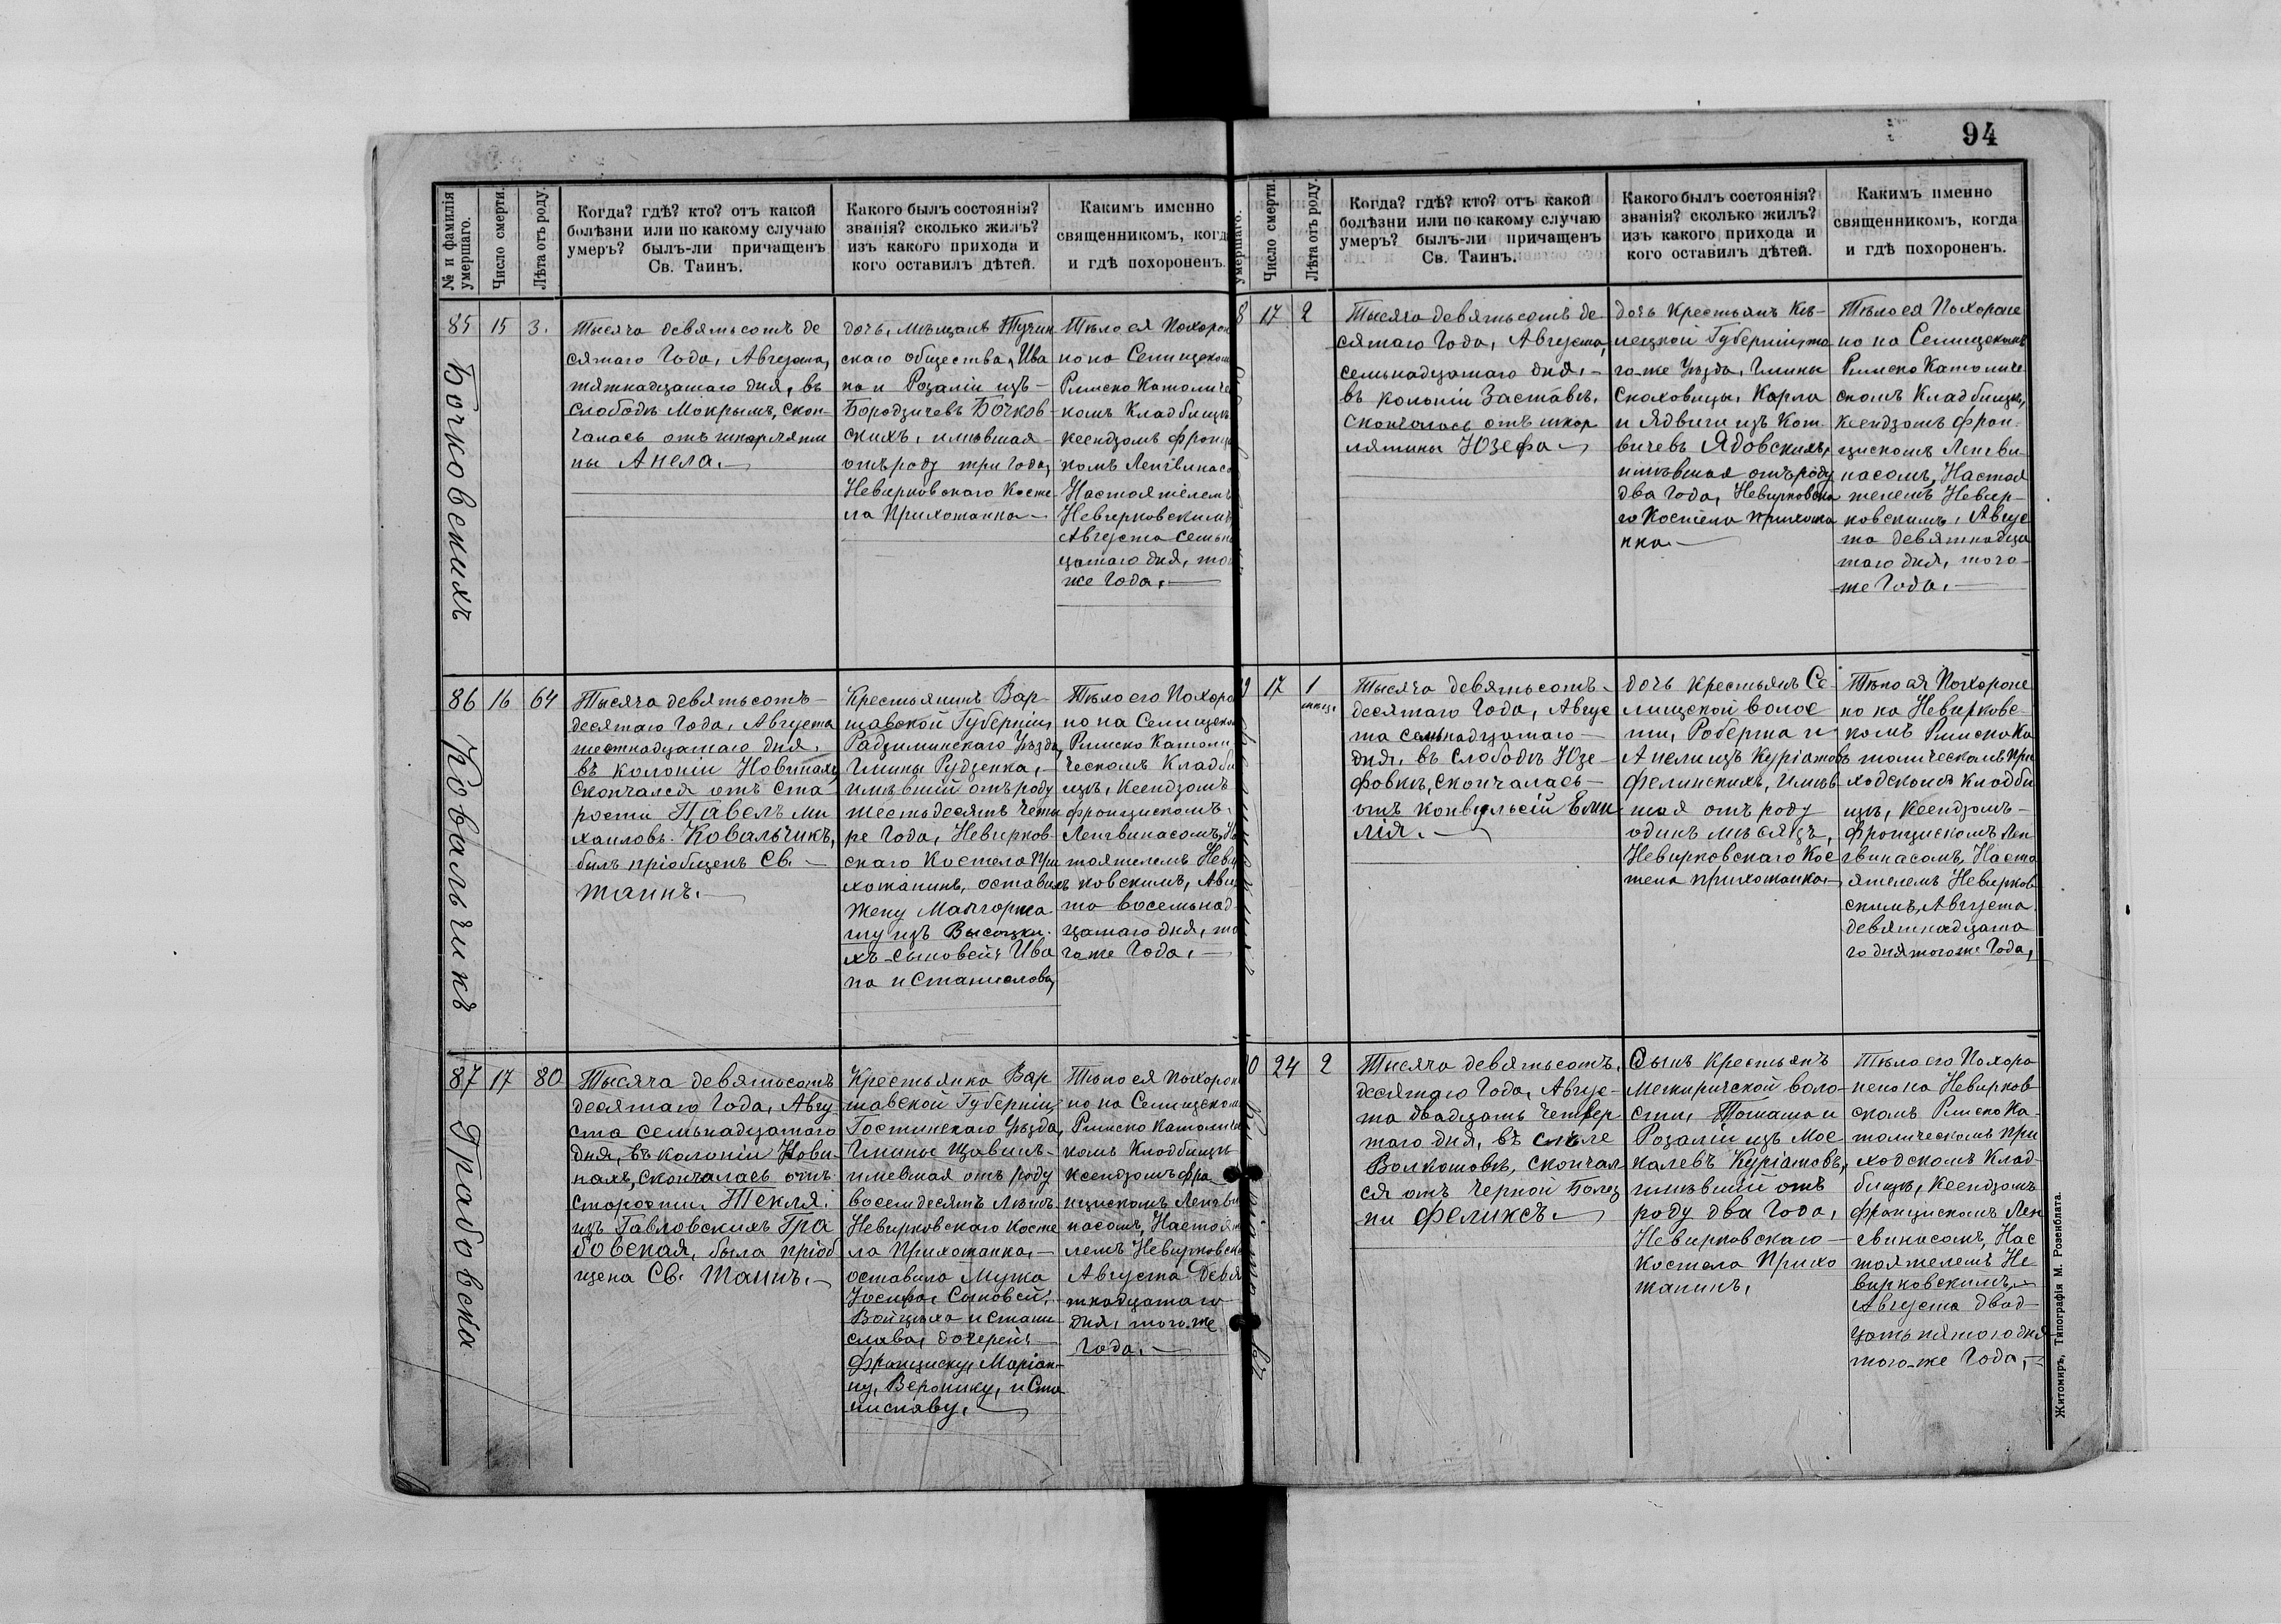 94
№ и фамилія
умершаго.
Число смерти.
Лѣта отъ роду.
Когда? гдѣ? кто? отъ какой
болѣзни или по какому случаю
умеръ? былъ-ли причащенъ
Св. Таинъ.
Какого былъ состоянія?
званія? сколько жилъ?
изъ какого прихода и
кого оставилъ дѣтей.
Каким именно
священникомъ, когд
и гдѣ похороненъ.
85
Бочковскихъ
15
3.
Тысяча девятьсотъ де
сятаго Года, Августа,
пятнадцатаго дня, въ
слободѣ Мокрымъ, скон-
чалась отъ шкарляти
ны Анеля.
дочь, мѣщанъ Тучин
скаго общества, Ива
на и Розаліи изъ
Бородзичевъ Бочков-
скихъ, имѣвшая
отъ роду три Года,
Невирковскаго Косте
ла Прихожанка
Тѣло ея Похорон
но на Селищском
Римско Католиче
комъ Кладбищѣ
Ксендзомъ Франци
комъ Ленгвинасо
Настоятелемъ
Невирковскимъ
Августа семьна
цатаго дня, то
же Года.
86
Ковальчикъ
16
64
Тысяча девятьсотъ
десятаго Года, Августа
шестнадцатаго дня,
въ колоніи Новинахъ,
скончался отъ ста
рости Павелъ Ми
хаиловъ Ковальчикъ,
былъ пріобщенъ Св.
Таинъ.
Крестьянинъ Вар-
шавской Губерніи,
Радзиминскаго Уѣзда,
Гмины Рудзенка,
имѣвшій отъ роду
шестьдесятъ четы
ре Года, Невирков-
скаго Костела При
хожанинъ, оставилъ
жену Малгоржа
ту изъ Высоцки
хъ сыновей: Ива
на и Станислова,
Тѣло его Похоро
но на Селищско
Римско Католи
ческомъ Кладби
щѣ, Ксендзомъ
Францискомъ
Ленгвинасомъ, На
тоятелемъ Неви
ковскимъ, Авгу
та восемьнад
цатаго дня, то
го же Года.
87
Грабовска
17
80
Тысяча девятьсотъ
десятаго Года, Авгу
ста семьнадцатаго
дня, въ колоніи Нови-
нахъ, скончалась отъ
старости, Текля
изъ Гавловскихъ Гра
бовская, была пріоб
щена Св. Таинъ.
Крестьянка Вар
шавской Губерніи,
Гостинскаго Уѣзда,
Гмины Щавинъ
имевшая отъ роду
восемдесятъ Лѣтъ
Невирковскаго Косте
ла Прихожанка,
оставила Мужа
Іосифа, Сыновей:
Войцѣха и Стани
слава, дочерей:
Франциску, Маріан-
ну, Веронику, и Ста
ниславу.
Тѣло ея Похорон
но на Селищском
Римско Католиче
комъ Кладбищѣ
Ксендзомъ Фра
нцискомъ Ленгви
насомъ, Настоят
лемъ Невирковск
Августа Девя
тнадцатаго
дня, того же
Года.
умершаго.
Число смерти.
Лѣта отъ роду.
Когда? гдѣ? кто? отъ какой
болѣзни или по какому случаю
умеръ? былъ-ли причащенъ
Св. Таинъ.
Какого былъ состоянія?
званія? сколько жилъ?
изъ какого прихода и
кого оставилъ дѣтей.
Какимъ именно
священникомъ, когда
и гдѣ похороненъ.
8
17
2
Тысяча девятьсотъ де-
сятаго Года, Августа,
семьнадцатаго дня,
въ колоніи Заставѣ,
скончалась отъ шкар
лятины Юзефа
дочь Крестьянъ Кѣ-
лецкой Губерніи, то
го-же Уѣзда, Гмины
Снаховицы, Карла
и Ядвиги изъ Кот
вичевъ Ядовскихъ,
имѣвшая отъ роду
два Года, Невирковска
го Костела Прихожа
нка.
Тѣло ея Похороне
но на Селищскомъ
Римско Католиче
скомъ Кладбищѣ,
Ксендзомъ Фран-
цискомъ Ленгви
насомъ, Настоя
телемъ Невир-
ковскимъ, Авгус
та девятнадца
таго дня, того-
же Года.
9
17
1
мѣсц.
Тысяча девятьсотъ
десятаго Года, Авгус
та семьнадцатаго
дня, въ слободѣ Юзе-
фовкѣ, скончалась
отъ конвульсій Еми
лія.
дочь Крестьянъ Се-
лищской волос
ти, Роберта и
Анели изъ Куріатовъ
Фелинскихъ, имѣв
шая отъ роду
одинъ мѣсяцъ,
Невирковскаго Кос
тела прихожанка.
Тѣло ея Похороне
но на Невирковс-
комъ Римско Ка
толическомъ При
ходскомъ Кладби
щѣ, Ксендзомъ
Францискомъ Лен
гвинасомъ, Насто
ятелемъ Невирков
скимъ, Августа
девятнадцата
го дня того же Года,
0
24
2
Тысяча девятьсотъ
десятаго Года, Авгус-
та двадцать четвер
таго дня, въ селе
Волкошовѣ, скончал
ся отъ Черной Болез
ни Феликсъ.
Сынъ Крестьянъ
Межиричской воло-
сти, Томаша и
Розаліи изъ Мос
калевъ Куріатовъ,
имѣвшій отъ
роду два Года,
Невирковскаго
Костела Прихо
жанинъ,
Тѣло его Похоро
нено на Невирков
скомъ Римско Ка-
толическомъ При
ходскомъ Клад-
бищѣ, Ксендзомъ
Францискомъ Лен
гвинасомъ, Нас
тоятелемъ Не
вирковскимъ
Августа двад-
цать пятого дня
того-же Года,
Житомиръ, Типографія М. Розенблата.